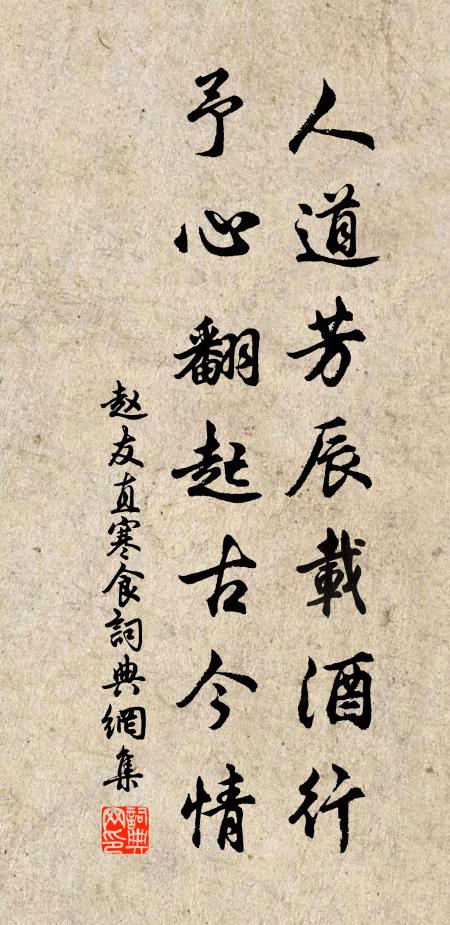 人道芳辰載酒行
予心翻起古今情
赵友直寒食詞典網集
詞典網印